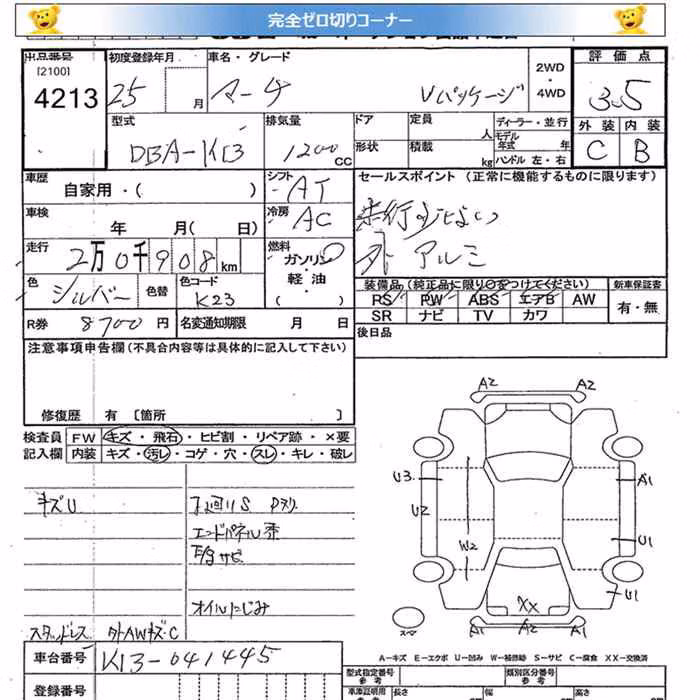 完全ゼロ切りコーナー
出品番号 初度登録年月 車名・グレード 2WD・4WD 評価点
[2100]
4213 25 月 マーチ Vパッケージ 3.5
型式 排気量 ドア 定員 人 ディーラー・並行 外装 内装
DBA-K13 1200 CC 形状 積載 kg モデル年式 年 ハンドル 左・右 C B
車歴 シフト セールスポイント (正常に機能するものに限ります)
自家用・( ) AT
車検 冷房
年 月( 日) AC
外 アルミ
走行 燃料
2万0千908km ガソリン
軽油・( )
色 色替 色コード 装備品 (純正品に限り○をつけてください) 新車保証書
シルバー K23 RS PW ABS エアB AW 有・無
SR ナビ TV カワ
R券 8700円 名変通知期限 月 日
後日品
注意事項申告欄 (不具合内容等は具体的に記入して下さい)
修復歴 有 [箇所 ]
検査員 FW キズ・飛石・ヒビ割・リペア跡・×要
記入欄 内装 キズ・汚レ・コゲ・穴・スレ・キレ・破レ
キズU
エンドパネル
サビ
オイルにじみ
スタッドレス 外AWキズ・C
A2 A2
U3 A1
U2
W2 U1
U1
XX
スマ A1 A2 A1
A-キズ E-エクボ U-凹み W-補修跡 S-サビ C-腐食 XX-交換済
車台番号 K13-041445
型式指定番号 参考 類別区分番号 参考
登録番号 車庫証明用 参考 長さ 幅 高さ
cm cm cm